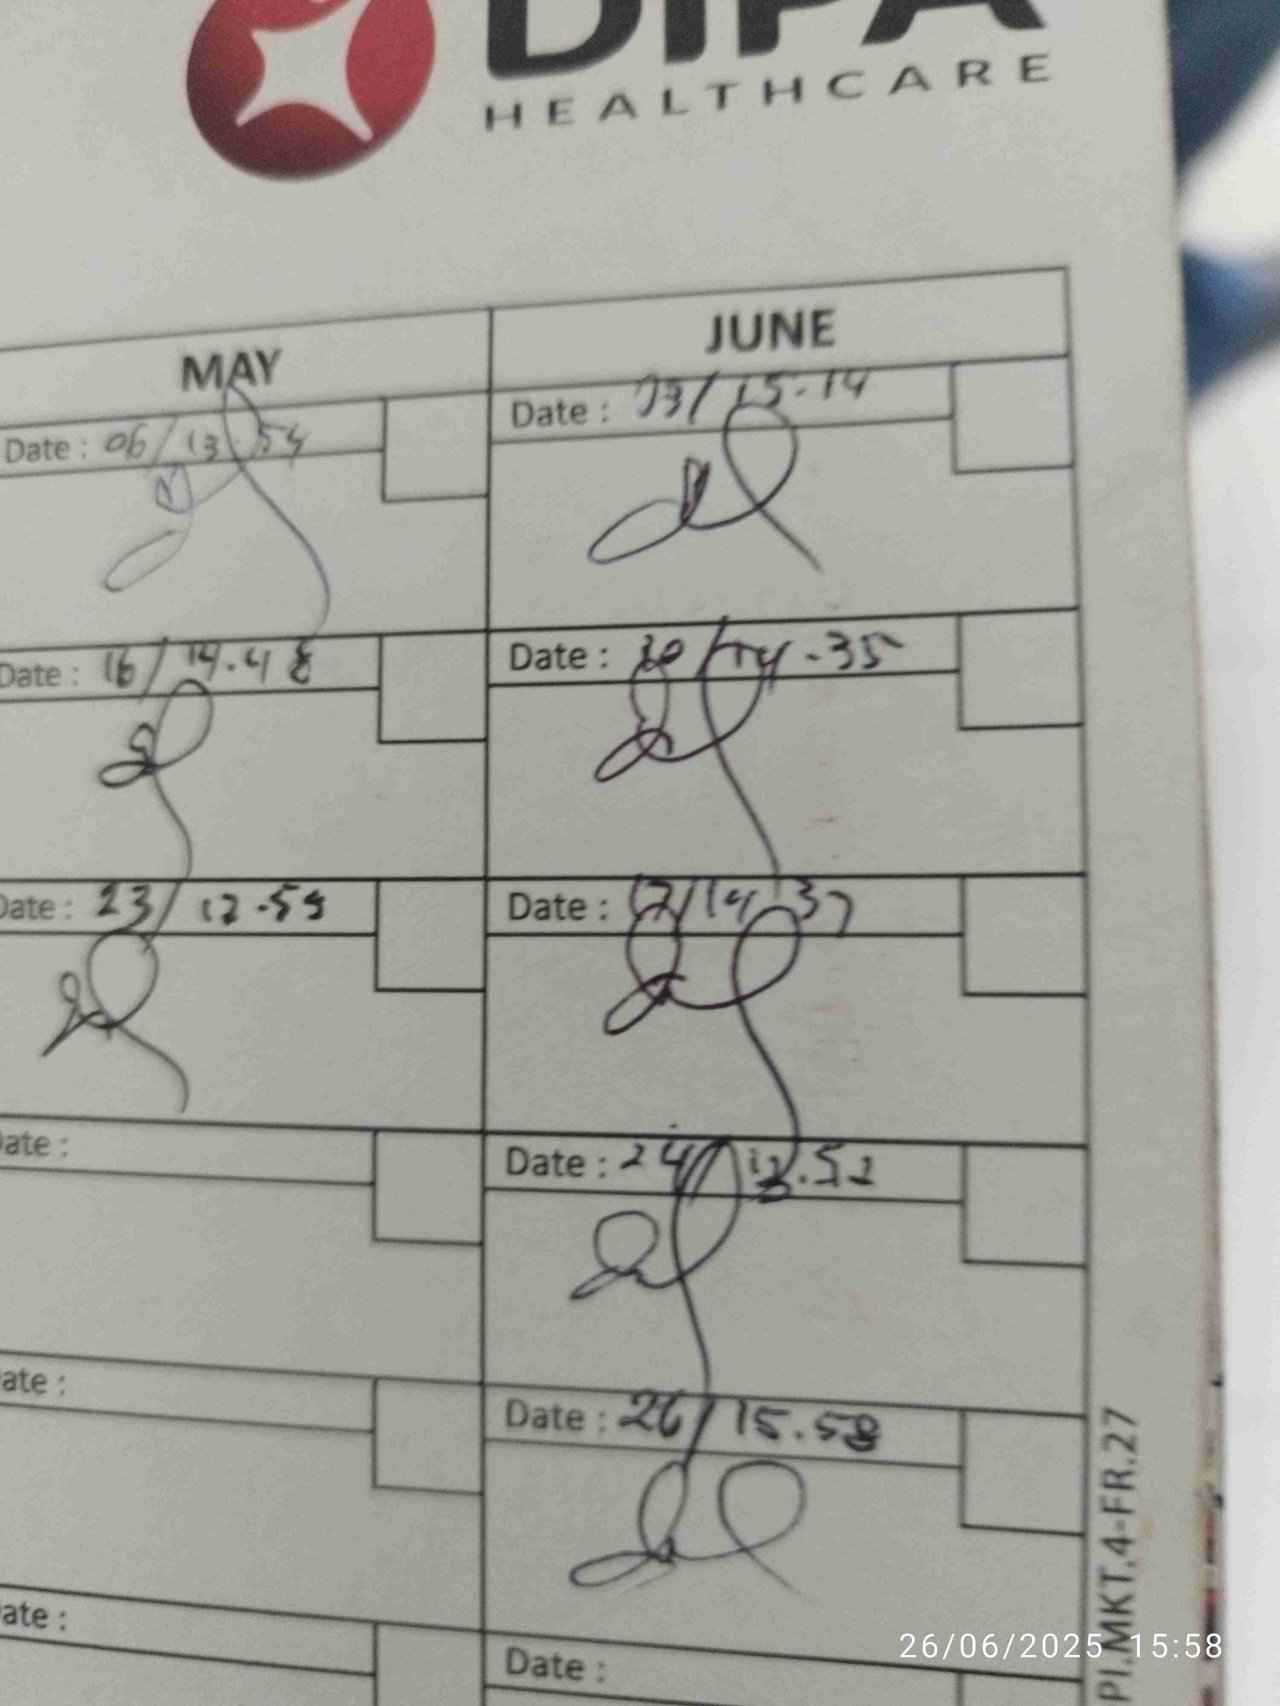 DIPA
HEALTHCARE
MAY
JUNE
Date : 06/13.54
Date : 03/15.14
Date : 16/14.48
Date : /14.35
Date : 23/12.59
Date : 17/14.37
ate :
Date : 24/ .52
ate :
Date : 26/15.58
ate :
Date :
PI.MKT.4-FR.27
26/06/2025 15:58